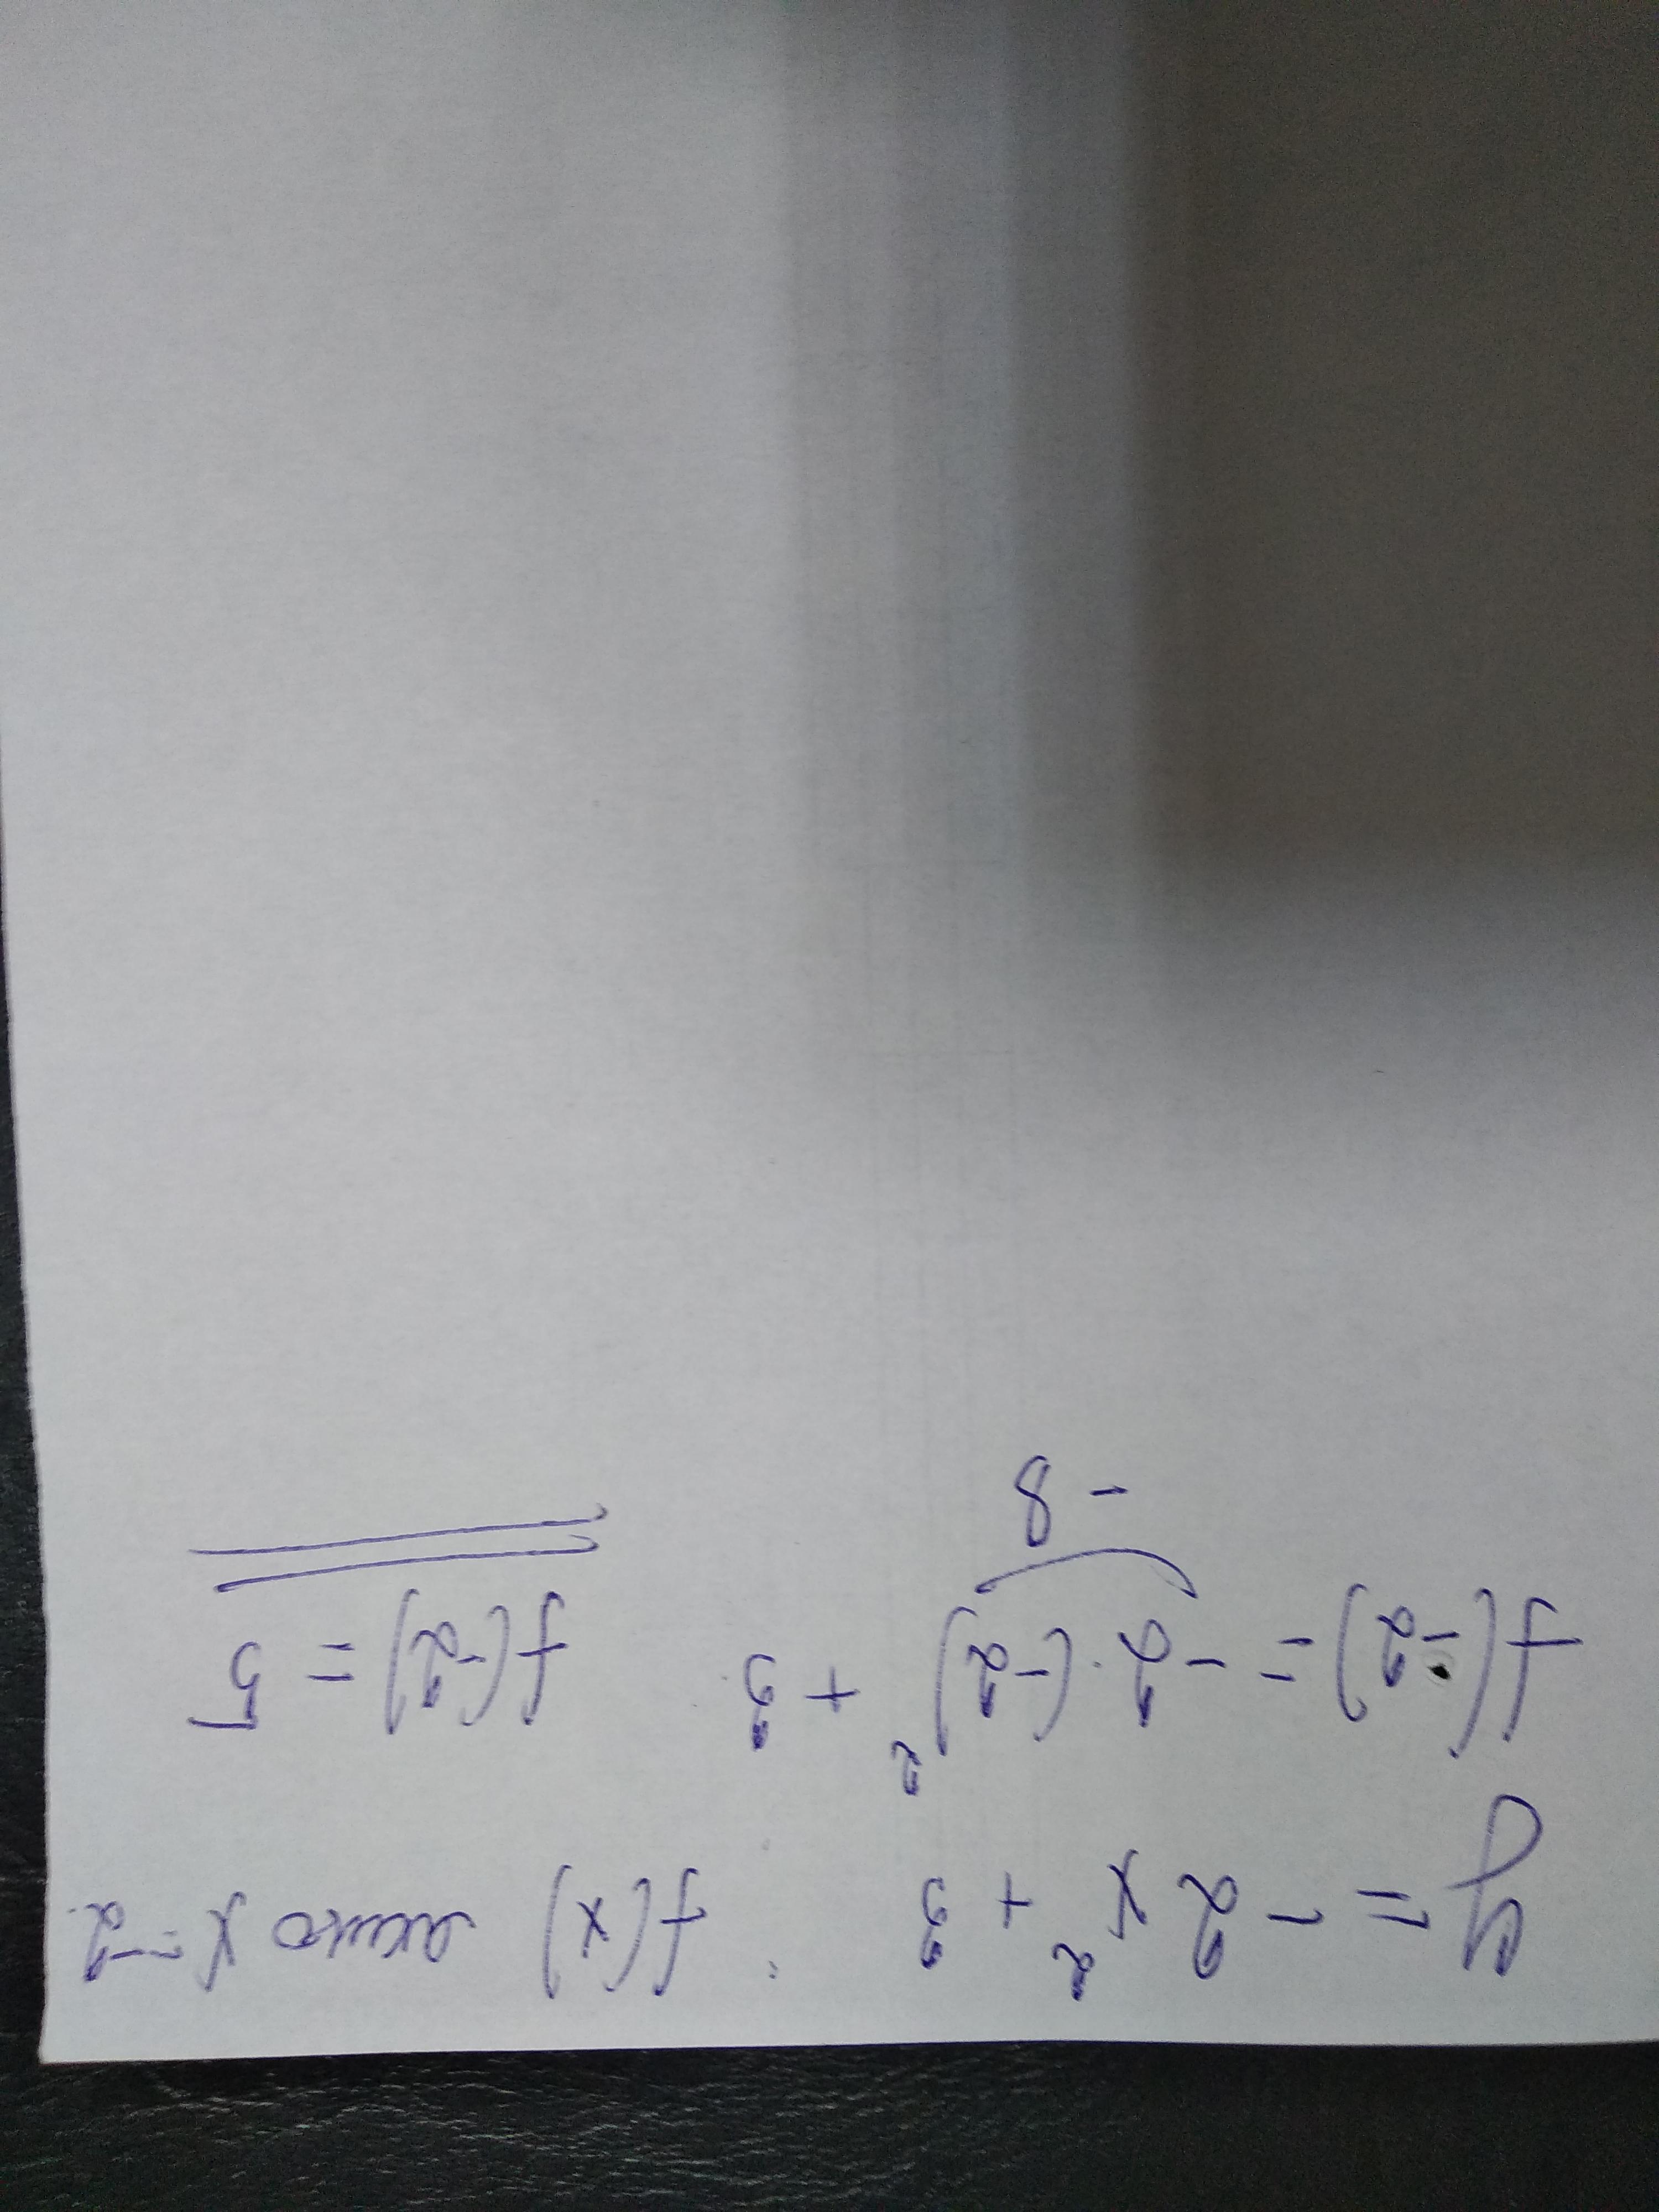 y = -2x² + 3 ; f(x) якщо x = -2.
f(-2) = -2·(-2)² + 3. f(-2) = 5
-8